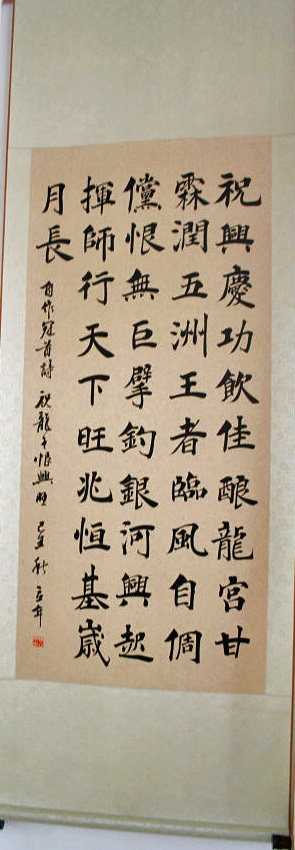 祝興慶功飲佳酿龍宮甘
霖潤五洲王者臨風自倜
儻恨無巨擘釣銀河興起
揮師行天下旺兆恒基歲
月長
自作冠首詩 祝龍王恨興旺 己丑秋